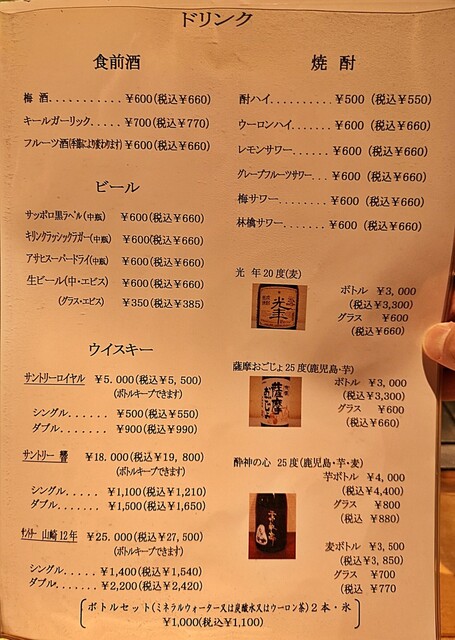 ドリンク
食前酒
梅 酒...........¥600(税込¥660)
キールガーリック.....¥700(税込¥770)
フルーツ酒(季節により変わります)¥600(税込¥660)
ビール
サッポロ黒ラベル(中瓶) ¥600(税込¥660)
キリンクラッシックラガー(中瓶) ¥600(税込¥660)
アサヒスーパードライ(中瓶) ¥600(税込¥660)
生ビール(中・エビス) ¥600(税込¥660)
(グラス・エビス) ¥350(税込¥385)
ウイスキー
サントリーロイヤル ¥5.000(税込¥5,500)
(ボトルキープできます)
シングル...... ¥500(税込¥550)
ダブル....... ¥900(税込¥990)
サントリー 響 ¥18.000(税込¥19,800)
(ボトルキープできます)
シングル..... ¥1,100(税込¥1,210)
ダブル....... ¥1,500(税込¥1,650)
サントリー 山崎12年 ¥25.000(税込¥27,500)
(ボトルキープできます)
シングル...... ¥1,400(税込¥1,540)
ダブル....... ¥2,200(税込¥2,420)
焼 酎
酎ハイ.......... ¥500 (税込¥550)
ウーロンハイ...... ¥600 (税込¥660)
レモンサワー...... ¥600 (税込¥660)
グレープフルーツサワー... ¥600 (税込¥660)
梅サワー........ ¥600 (税込¥660)
林檎サワー....... ¥600 (税込¥660)
光 年20度(麦)
光年
ボトル ¥3,000
(税込¥3,300)
グラス ¥600
(税込¥660)
薩摩おごじょ25度(鹿児島・芋)
薩摩
ボトル ¥3,000
(税込¥3,300)
グラス ¥600
(税込¥660)
酔神の心 25度(鹿児島・芋・麦)
芋ボトル ¥4,000
(税込¥4,400)
グラス ¥800
(税込 ¥880)
麦ボトル ¥3,500
(税込¥3,850)
グラス ¥700
(税込 ¥770
ボトルセット(ミネラルウォーター又は炭酸水又はウーロン茶)2本・氷
¥1,000(税込¥1,100)